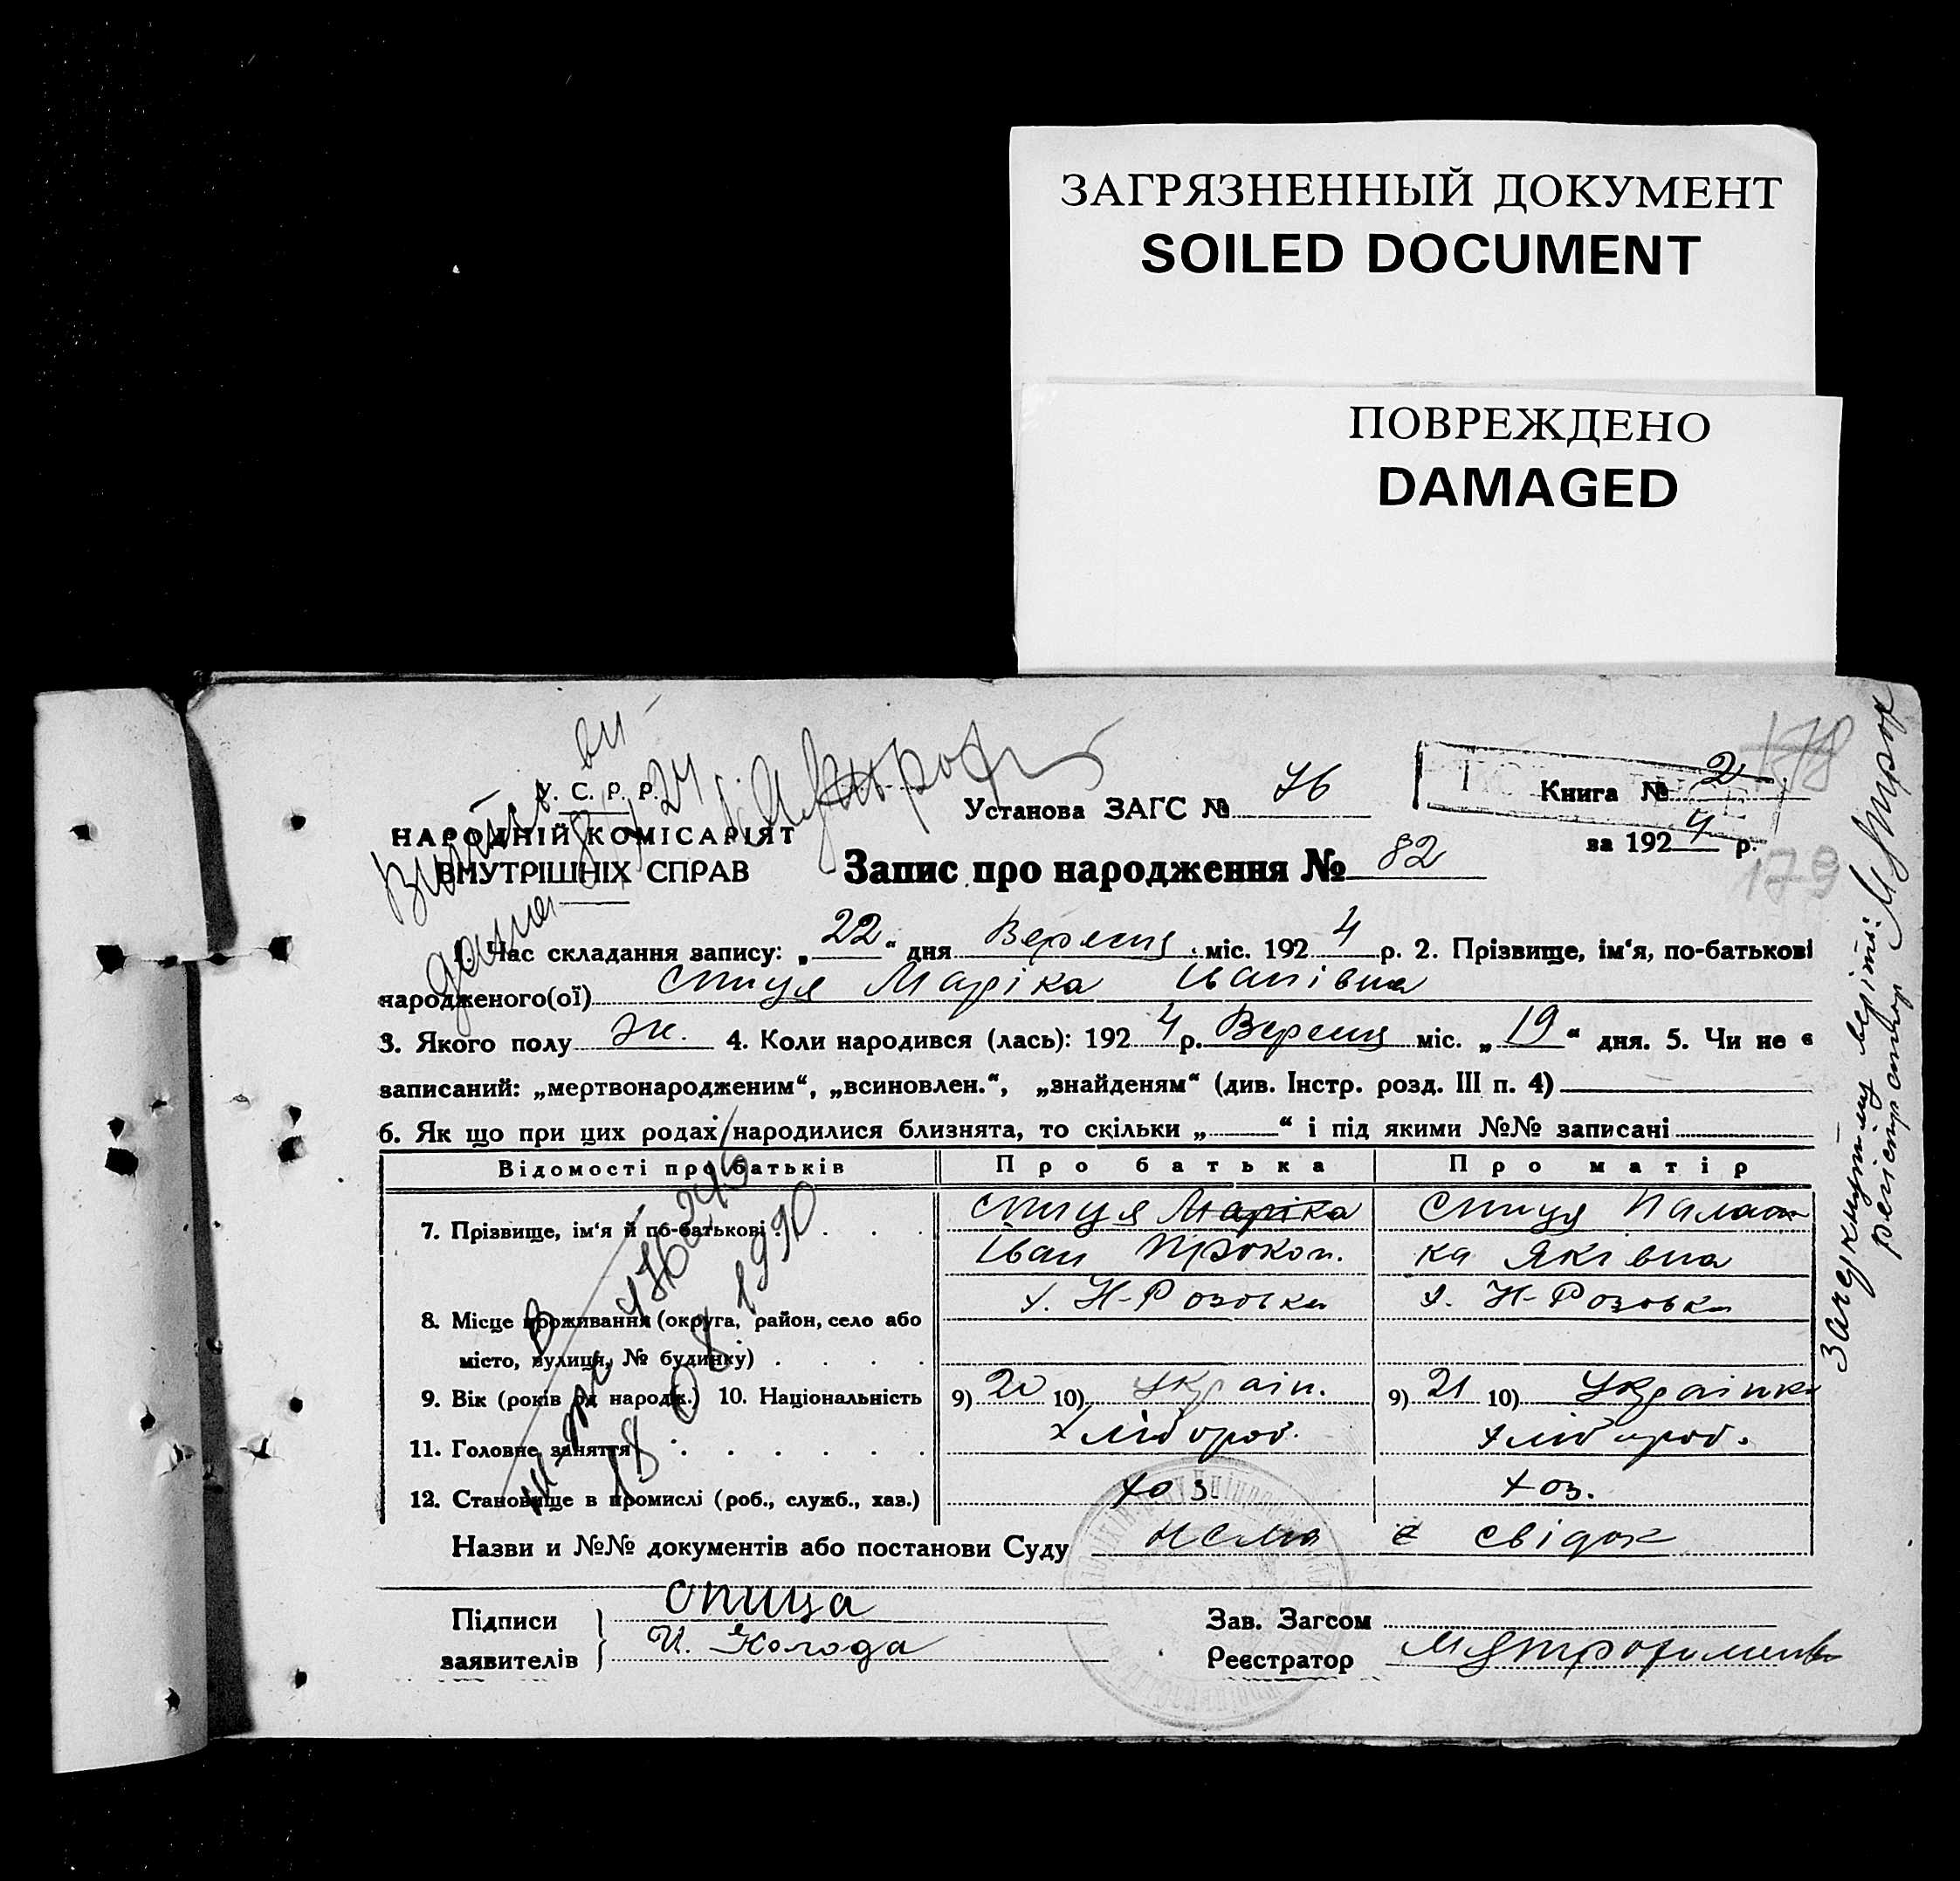 ЗАГРЯЗНЕННЫЙ ДОКУМЕНТ
SOILED DOCUMENT
ПОВРЕЖДЕНО
DAMAGED
178
У. С. Р. Р.
НАРОДНІЙ КОМІСАРІЯТ
ВНУТРІШНІХ СПРАВ
Установа ЗАГС № 76
Книга № 2
за 1924 р.
179
Запис про народження № 82
1. Час складання запису: „22“ дня Вересня міс. 1924 р. 2. Прізвище, ім‘я, по-батькові
народженого(ої) Спиця Маріка Іванівна
3. Якого полу Ж. 4. Коли народився (лась): 1924 р. Вересня міс. „19“ дня. 5. Чи не є
записаний: „мертвонародженим“, „всиновлен.“, „знайденям“ (див. Інстр. розд. III п. 4)
6. Як що при цих родах народилися близнята, то скільки „ “ і під якими №№ записані
Відомості про батьків Про батька Про матір
7. Прізвище, ім‘я й по-батькові Спиця Маріка Спиця Палаж
Іван Прокоп. ка Яківна
х. Н-Розовка х. Н-Розовка
8. Місце проживання (округа, район, село або
місто, вулиця, № будинку)
9. Вік (років од народж.) 10. Національність 9) 20 10) Україн. 9) 21 10) Українка
11. Головне заняття Хлібороб. Хлібороб.
12. Становище в промислі (роб., служб., хаз.) хоз. хоз.
Назви и №№ документів або постанови Суду нема є свідок
Підписи Спица
заявителів И. Колода
Зав. Загсом
Реєстратор
18 08 1990